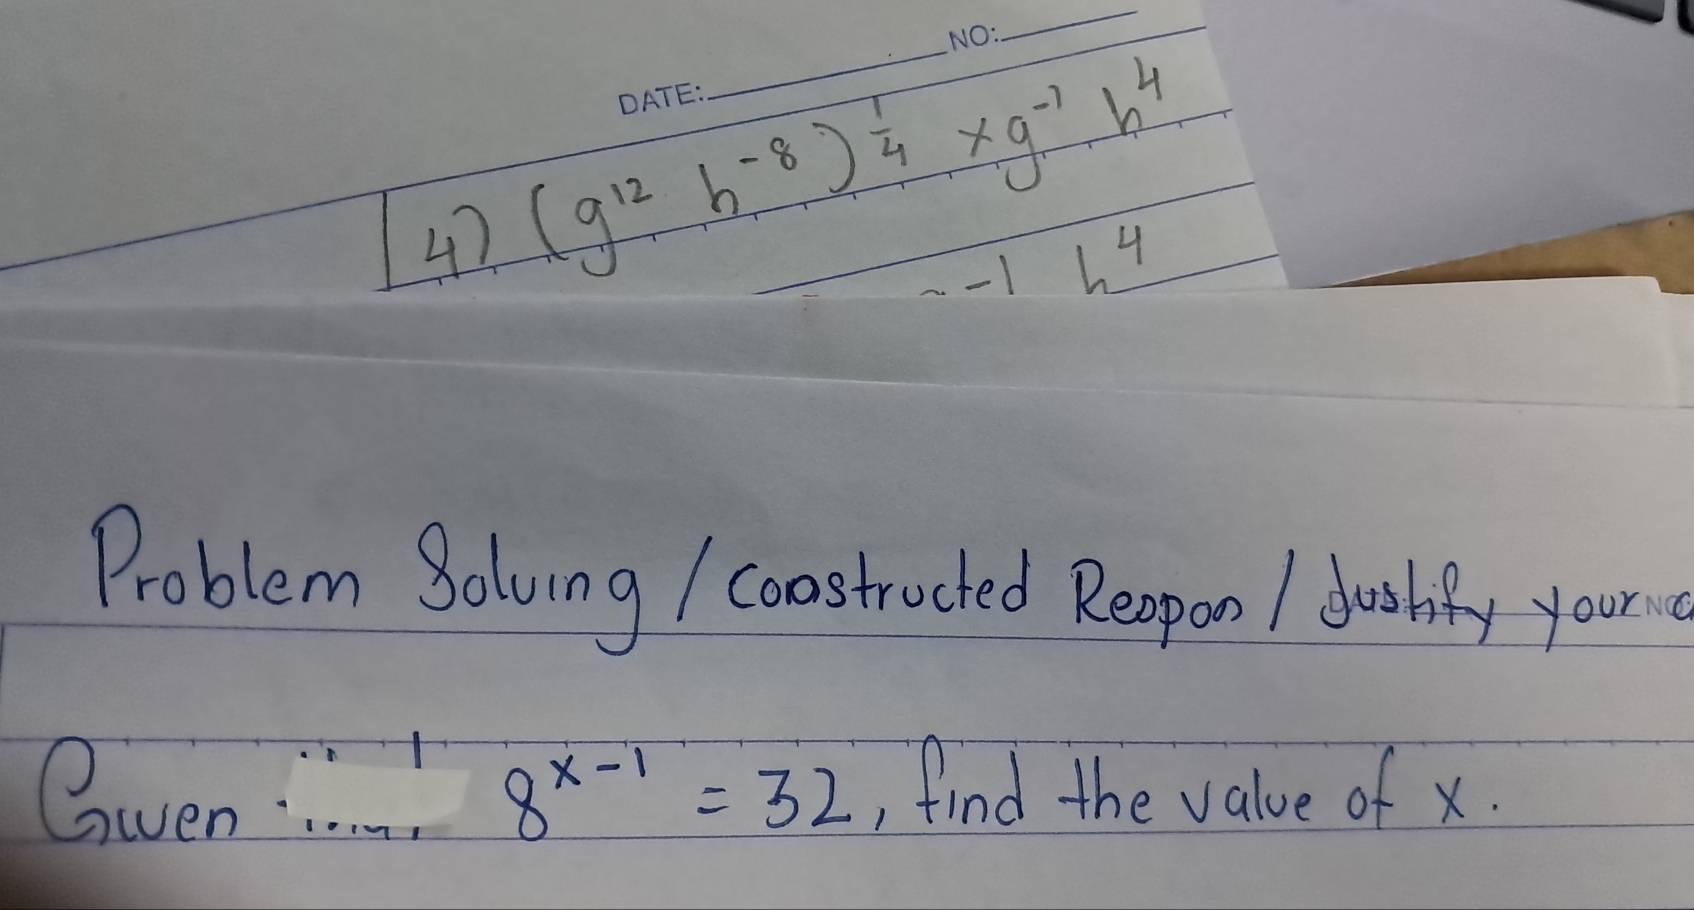 DATE: NO:
4) (g¹² h⁻⁸)^¼ × g⁻¹ h⁴
⁻¹ h⁴
Problem Solving / Constructed Respon / Justify your
Given 8ˣ⁻¹ = 32, find the value of x.